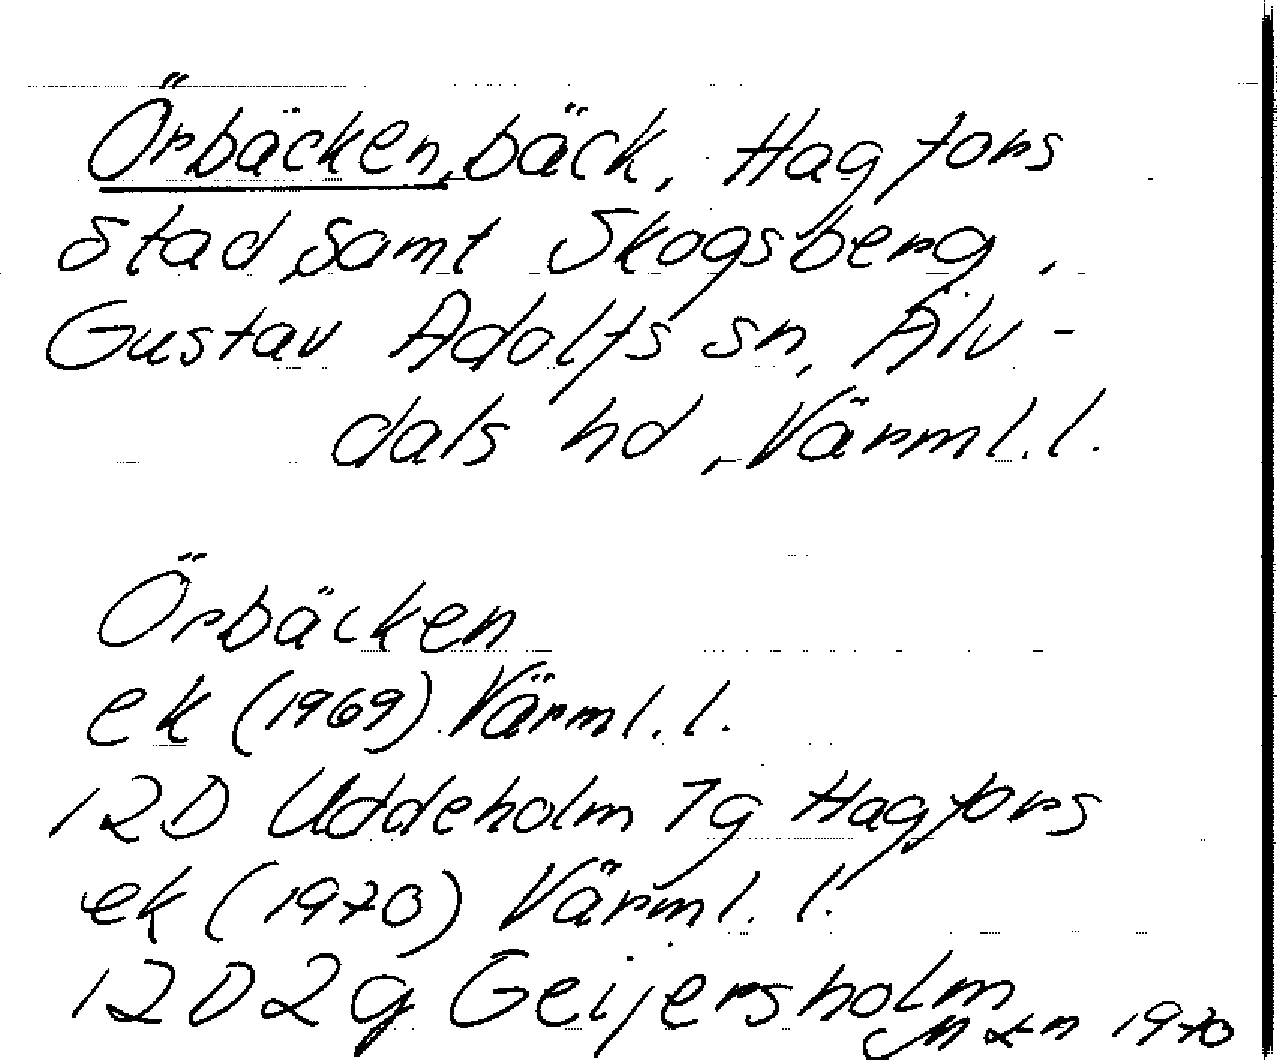 Örbäcken, bäck, Hagfors
stad, samt Skogsberg,
Gustav Adolfs sn, Älv-
dals hd, Värml. l.
Örbäcken
ek (1969) Värml. l.
12D Uddeholm 7g Hagfors
ek (1970) Värml. l.
12D 2g Geijersholm
1970